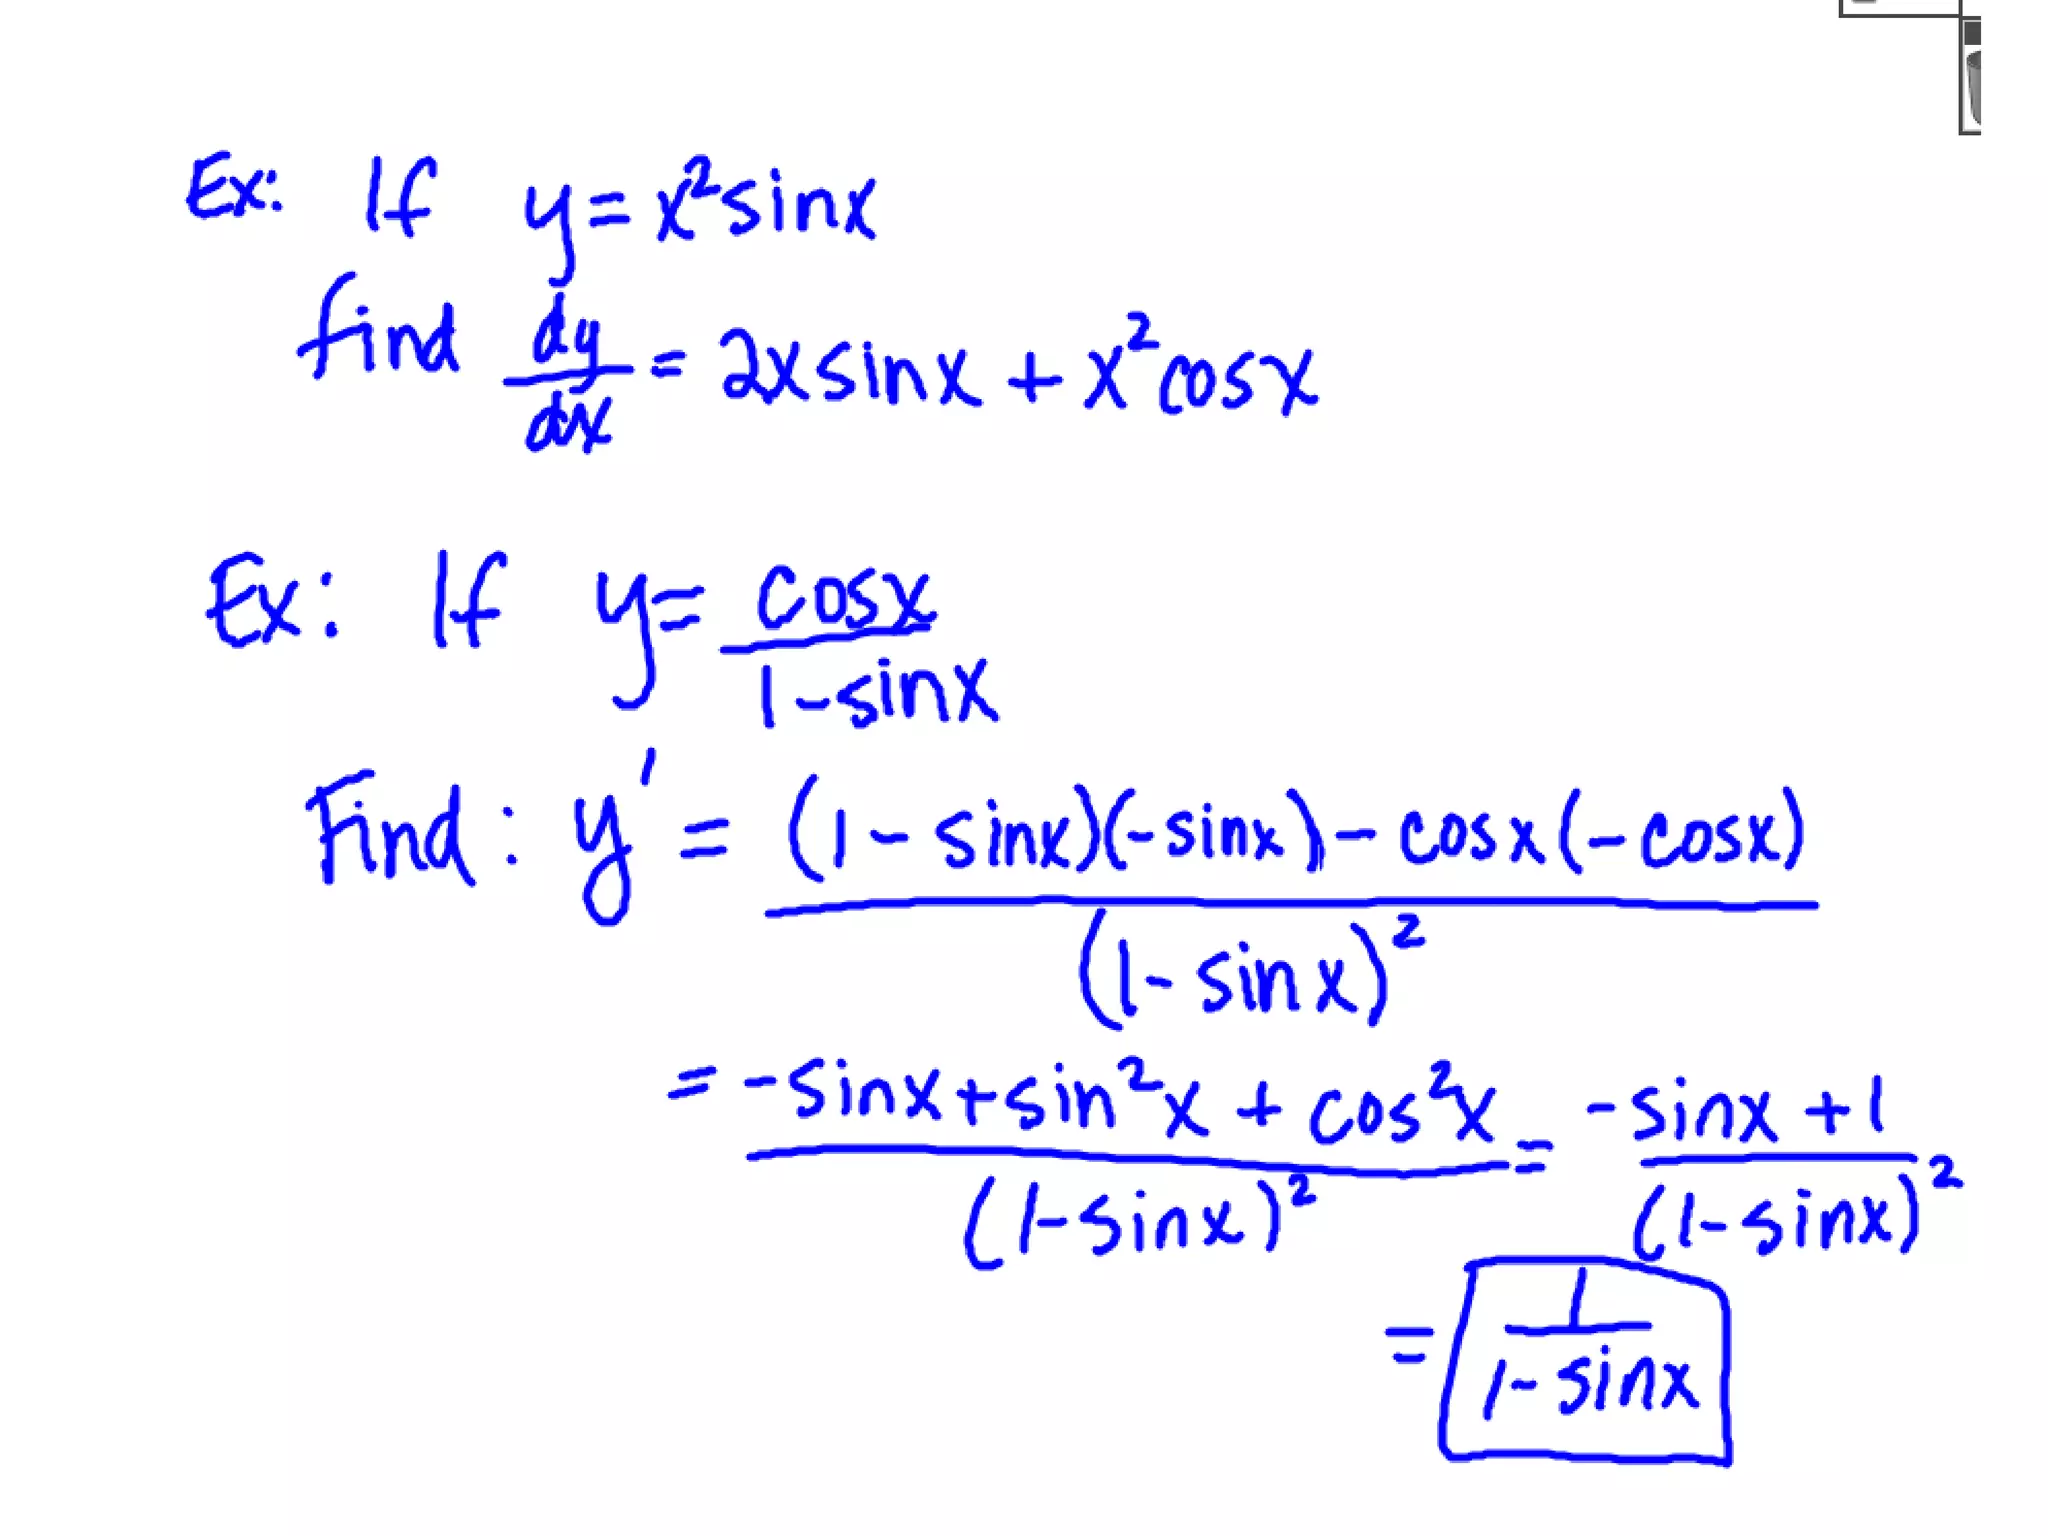 Ex: If y = x²sinx
find dy/dx = 2xsinx + x²cosx
Ex: If y = cosx/(1-sinx)
Find: y' = (1-sinx)(-sinx)-cosx(-cosx)/(1-sinx)²
= -sinx+sin²x+cos²x/(1-sinx)² = -sinx+1/(1-sinx)²
= 1/(1-sinx)